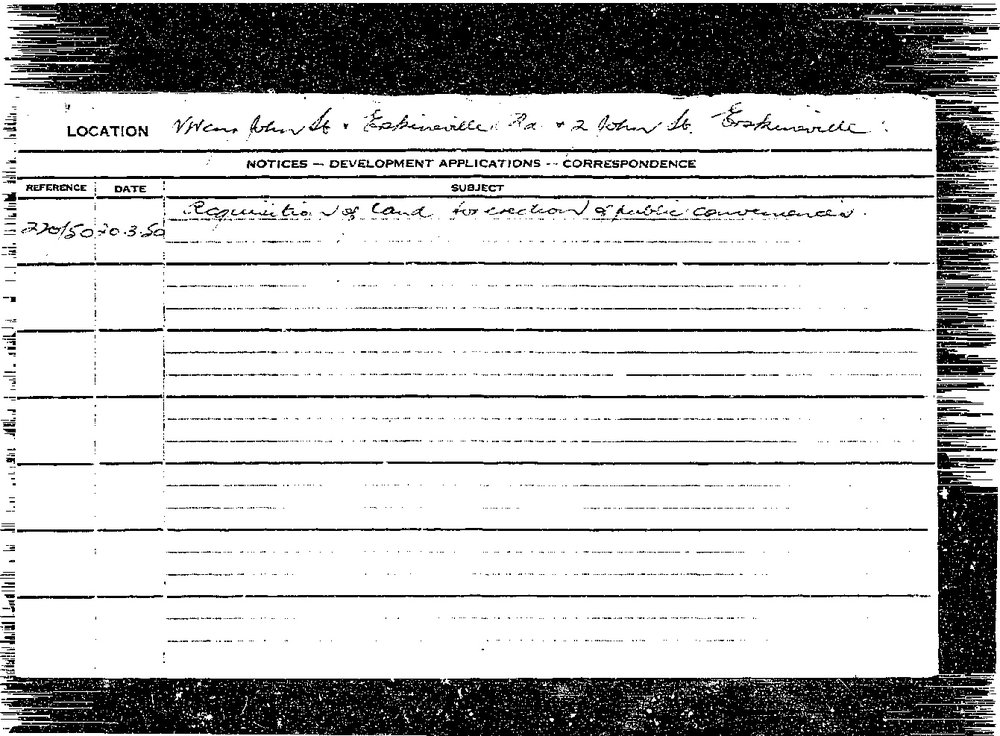 LOCATION John St. & Erskineville Rd. & 2 John St. Erskineville.
NOTICES — DEVELOPMENT APPLICATIONS -- CORRESPONDENCE
REFERENCE DATE SUBJECT
Acquisition of land for erection of public conveniences.
220/50 20.3.50